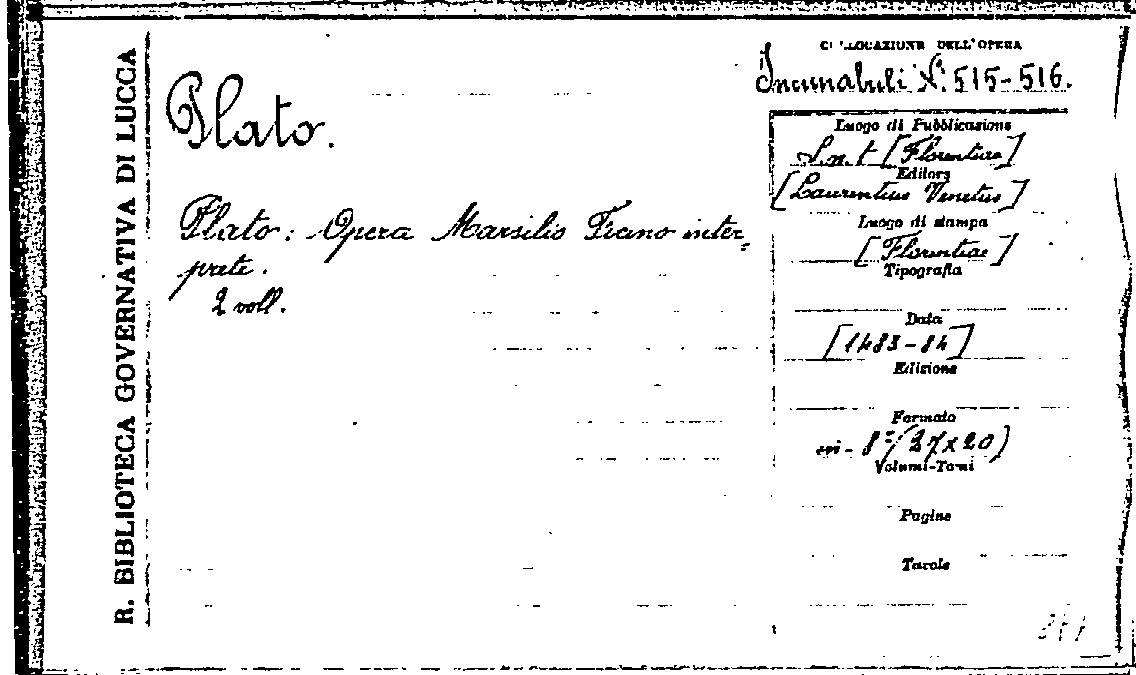 R. BIBLIOTECA GOVERNATIVA DI LUCCA
COLLOCAZIONE DELL'OPERA
Incunabuli N. 515-516.
Plato.
Plato: Opera Marsilio Ficino inter=
prete.
2 voll.
Luogo di Pubblicazione
S.n.t [Florentiae]
Editore
[Laurentius Venetus]
Luogo di stampa
[Florentiae]
Tipografia
Data
[1483-84]
Edizione
Formato
8º (27x20)
Volumi-Tomi
Pagine
Tavole